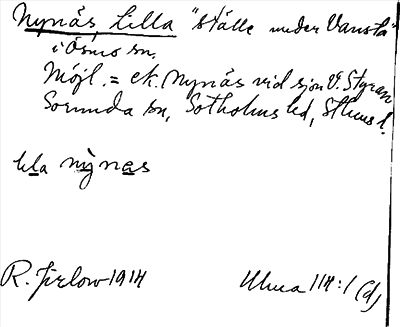 Nynäs, Lilla "ställe under Vansta"
i Ösmo sn.
Möjl. = ek. Nynäs vid sjön V. Styran
Sorunda sn, Sotholms hd, Sthms l.
lıla nynas
R. Jirlow 1914
Ulma 114:1 (d)